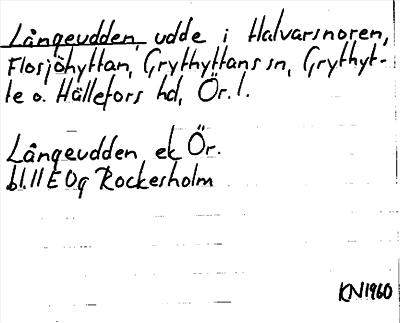 Långeudden, udde i Halvarsnoren,
Flosjöhyttan, Grythyttans sn, Grythyt-
te o. Hällefors hd, Ör. l.
Långeudden ek Ör.
bl. 11 E 0g Rockesholm
KN1960